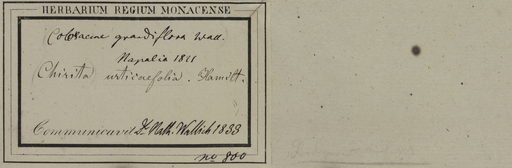 HERBARIUM REGIUM MONACENSE
grandiflora Wall.
Napalia 1821
Chirita urticaefolia. Hamilt.
Communicavit Dr. Nath. Wallich 1833
no 800